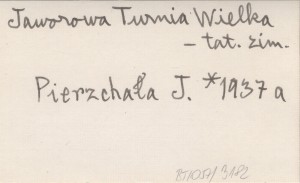 Jaworowa Turnia Wielka
– tat. zim.
Pierzchała J. *1937 a